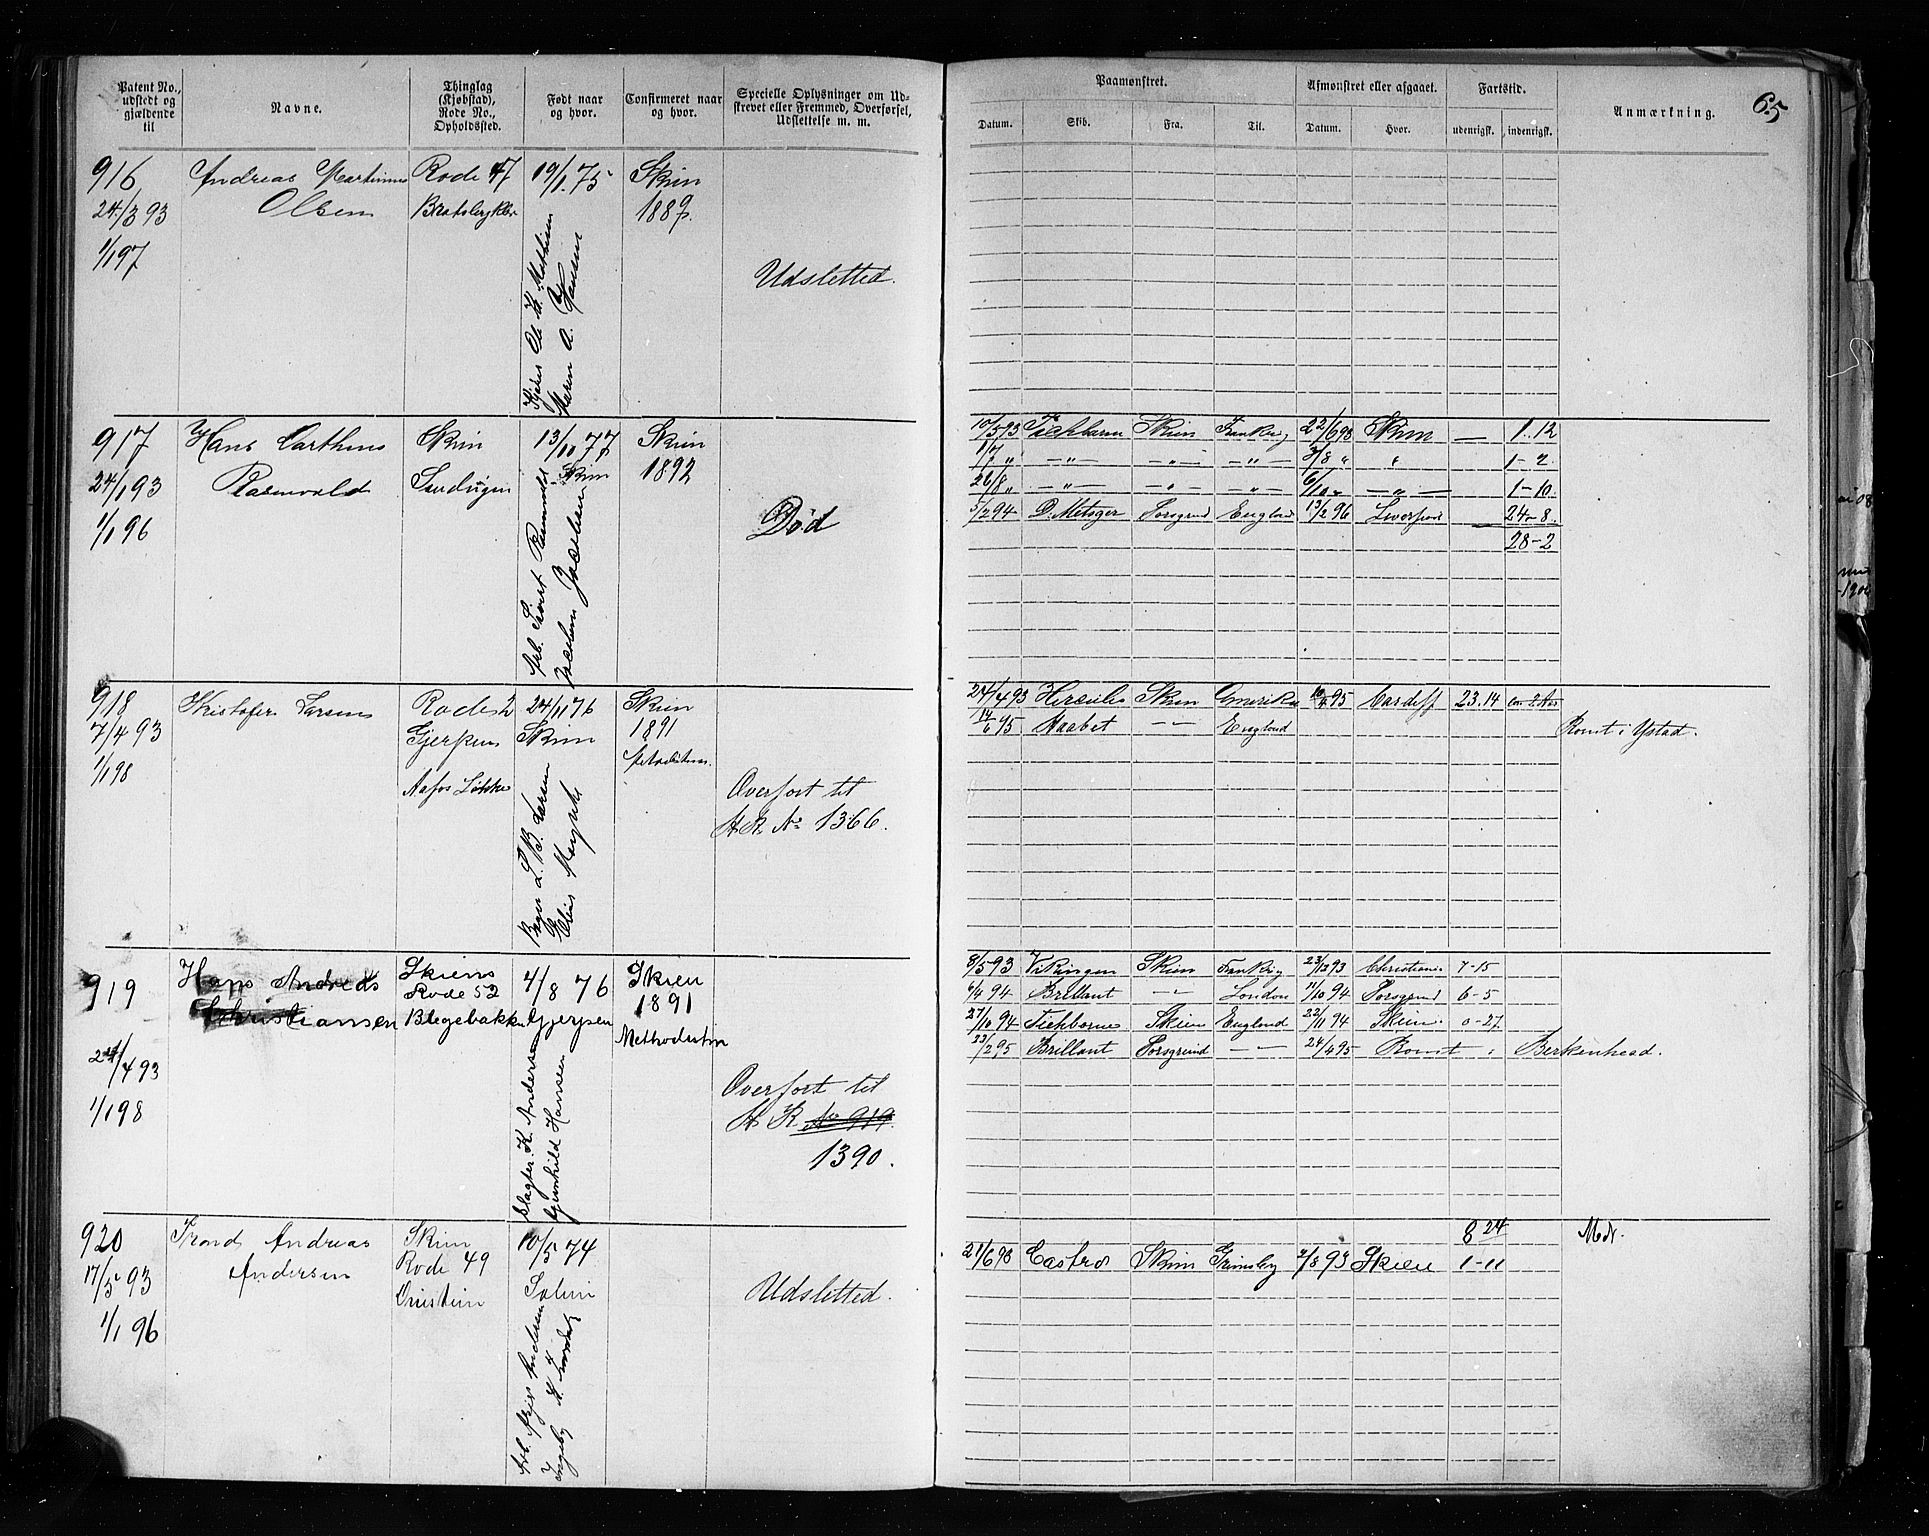 65
Patent No., udstedt og gjældende til
Navne.
Thinglag (Kjøbstad), Rode No., Opholdssted.
Født naar og hvor.
Confirmeret naar og hvor.
Specielle Oplysninger om Udskrevet eller Fremmed, Overførsel, Udslettelse m. m.
Paamønstret.
Afmønstret eller afgaaet.
Fartstid.
Anmærkning.
Datum. Skib. Fra. Til. Datum. Hvor. udenrigsk. indenrigsk.
916 Andreas Martinius Rode 47 19/1 75 Skien
24/3 93 Olsen Bratsbergkl. 1889.
1/1 97
Udslettet.
Maren A. Hansen
917 Hans Carthius Skien 13/10 77 Skien
24/1 93 Rasmvald Skien 1892
1/1 96
Død
Arb. Sivert
10/5 93 Tichborne Skien Frankrig 22/6 93 Skien — 1.12
1/7 " —"— —"— —"— 3/8 " " 1-2
26/8 " —"— —"— —"— 6/10 " —"— 1-10.
5/2 94 D. Metzger Porsgrund England 13/2 96 Liverpool 24-8.
28-2
918 Kristofer Larsen Rode 2 24/1 76 Skien
7/4 93 Gjerpen Skien 1891
1/1 98 Aafos Løkke Metodistern.
Overført til
A R No 1366.
Bager L. B. Larsen
24/4 93 Hercules Skien Amerika 95 Cardiff 23.14
14/6 95 Haabet —"— England Rømt i Ystad.
919 Hans Andreas Skiens 4/8 76 Skien
Christiansen Rode 52 Gjerpen 1891
Blegebakken Methodistern
24/4 93
1/1 98
Overført til
A R No 919.
1390.
Slagter K. Andersen
Gunhild Hansen
8/5 93 Vikingen Skien Frankrig 23/12 93 Christiania 7-15
6/4 94 Brillant —"— London 11/10 94 Porsgrund 6-5
27/10 94 Tichborne Skien England 22/11 94 Skien 0-27
23/2 95 Brillant Porsgrund —"— 24/4 95 Rømt i Berkenhead.
920 Trond Andreas Skien 10/5 74
17/5 93 Andersen Rode 49 Solum
1/1 96
Udslettet.
8 24
21/6 93 Castro Skien Grimsby 2/8 93 Skien 1-11